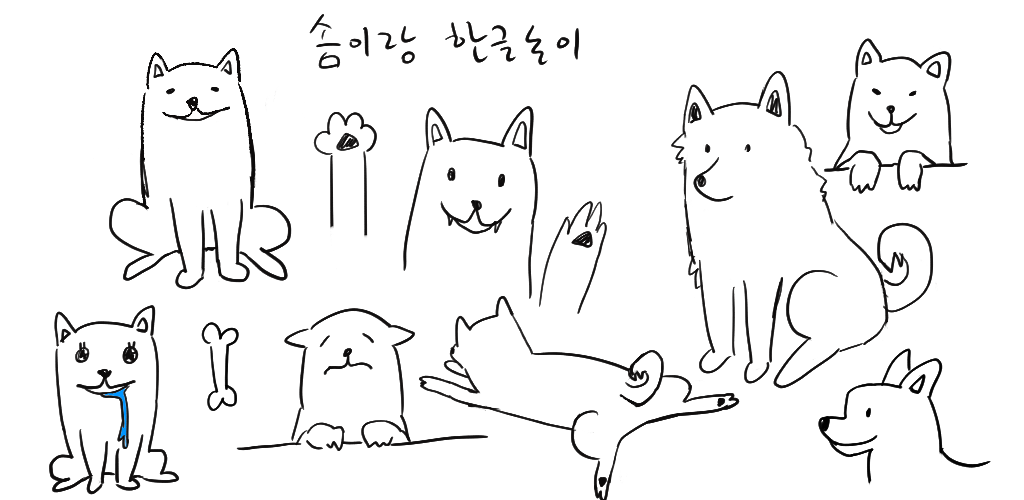 솜이랑 한글놀이